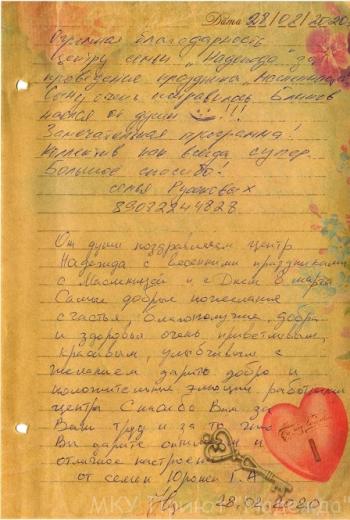 Дата 28/02/2020
Огромная благодарность
Центру семьи "Надежда" за
проведение праздника "Масленица"
Сыну очень понравилось. Блинов
наелся от души !!!
Замечательная программа!
Коллектив как всегда супер.
Большое спасибо!
семья
От души поздравляем центр
Надежда с весенними праздниками
с Масленицей и с Днём 8 марта
Самые добрые пожелания
счастья, благополучия, добра
и здоровья очень приветливым,
красивым, улыбчивым с
желанием дарить добро и
положительные эмоции работникам
центра Спасибо Вам за
Ваш труд и за то что
Вы дарите и
отличное настроение
от семьи Г.А
28.02.2020
МКУ "Приют "Надежда"